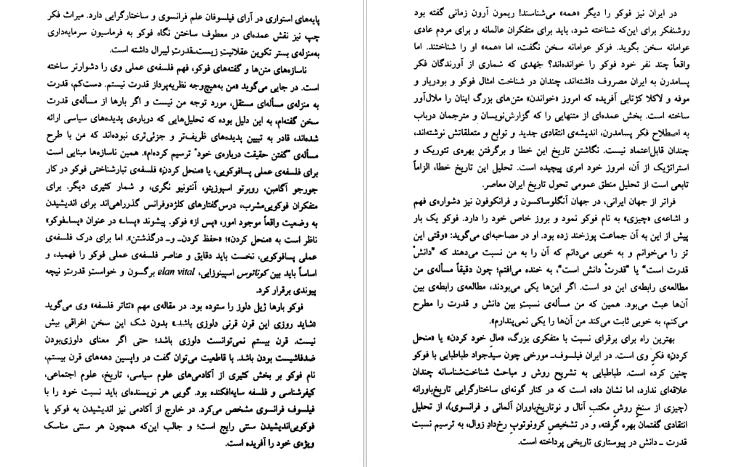 در ایران نیز فوکو را دیگر «همه» می‌شناسند! ریمون آرون زمانی گفته بود
روشنفکر برای این‌که شناخته شود، باید برای متفکران عالمانه و برای مردم عادی
عوامانه سخن بگوید. فوکو عوامانه سخن نگفت، اما «همه» او را شناختند. اما
واقعاً چند نفر خود فوکو را خوانده‌اند؟ جهدی که شماری از آورندگان فکر
پسامدرن به ایران مصروف داشته‌اند، چندان در شناخت امثال فوکو و بودریار و
موفه و لاکلا کژتابی آفریده که امروز «خواندن» متن‌های بزرگ اینان را ملال‌آور
ساخته است. بخش عمده‌ای از متنهایی را که گزارش‌نویسان و مترجمان درباب
به اصطلاح فکر پسامدرن، اندیشه‌ی انتقادی جدید و توابع و متعلقاتش نوشته‌اند،
چندان قابل‌اعتماد نیست. نگاشتن تاریخ این خطا و برگرفتن بهره‌ی تئوریک و
استراتژیک از آن، امروز خود امری پیچیده است. تحلیل این تاریخ خطا، الزاماً
تابعی است از تحلیل منطق عمومی تحول تاریخ ایران معاصر.
فراتر از جهان ایرانی، در جهان آنگلوساکسون و فرانکوفون نیز دشواره‌ی فهم
و اشاعه‌ی «چیزی» به نام فوکو نمود و بروز خاص خود را دارد. فوکو یک بار
پیش از این به آن جماعت پوزخند زده بود. او در مصاحبه‌ای می‌گوید: «وقتی این
تز را می‌خوانم و به خوبی می‌دانم که آن را به من نسبت می‌دهند که "دانش
قدرت است" یا "قدرت دانش است"، به خنده می‌افتم؛ چون دقیقاً مسأله‌ی من
مطالعه‌ی رابطه‌ی این دو است. اگر این‌ها یکی می‌بودند، مطالعه‌ی رابطه‌ی بین
آن‌ها عبث می‌بود. همین که من مسأله‌ی نسبت بین دانش و قدرت را مطرح
می‌کنم، به خوبی ثابت می‌کند من آن‌ها را یکی نمی‌پندارم».
بهترین راه برای برقرای نسبت با متفکری بزرگ، «مالِ خود کردن» یا «منحل
کردن» فکر وی است. در ایران فیلسوف‌ـ مورخی چون سیدجواد طباطبایی با فوکو
چنین کرده است. طباطبایی به تشریح روش و مباحث شناخت‌شناسانه چندان
علاقه‌ای ندارد، اما نشان داده است که در کنار گونه‌ای ساختارگرایی تاریخ‌باورانه
(چیزی از سنخ روش مکتب آنال و نوتاریخ‌باوران آلمانی و فرانسوی)، از تحلیل
انتقادی گفتمان بهره گرفته، و در تشخیص کرونوتوپ رخ‌دادِ زوال، به ترسیم نسبت
قدرت ـ دانش در پیوستاری تاریخی پرداخته است.
پایه‌های استواری در آرای فیلسوفان علم فرانسوی و ساختارگرایی دارد. میراث فکر
چپ نیز نقش عمده‌ای در معطوف ساختن نگاه فوکو به فرماسیون سرمایه‌داری
به‌منزله‌ی بستر تکوین عقلانیت زیست‌ـقدرتِ لیبرال داشته است.
ناسازه‌های متن‌ها و گفته‌های فوکو، فهم فلسفه‌ی عملی وی را دشوارتر ساخته
است. در جایی می‌گوید «من به‌هیچ‌وجه نظریه‌پرداز قدرت نیستم. دست‌کم، قدرت
به منزله‌ی مسأله‌ای مستقل، مورد توجه من نیست و اگر بارها از مسأله‌ی قدرت
سخن گفته‌ام، به این دلیل بوده که تحلیل‌هایی که درباره‌ی پدیده‌های سیاسی ارائه
شده‌اند، قادر به تبیین پدیده‌های ظریف‌تر و جزئی‌تری نبوده‌اند که من با طرح
مسأله‌ی "گفتن حقیقت درباره‌ی خود" ترسیم کرده‌ام». همین ناسازه‌ها مبنایی است
برای فلسفه‌ی عملی پسافوکویی، یا «منحل کردن» فلسفه‌ی تبارشناختی فوکو در کار
جورجو آگامبن، روبرتو اسپوزیتو، آنتونیو نگری، و شمار کثیری دیگر. برای
متفکران فوکویی‌مشرب، درس‌گفتارهای کلژدوفرانس گذرراهی‌اند برای اندیشیدن
به وضعیت واقعاً موجود امور، «پس از» فوکو. پیشوند «پسا»ـ در عنوان «پسا‌ـفوکو»
ناظر است به «منحل کردن»؛ «حفظ کردن‌ـ و‌ـ درگذشتن». اما برای درک فلسفه‌ی
عملی پسافوکویی، نخست باید دقایق و عناصر فلسفه‌ی عملی فوکو را فهمید، و
اساساً باید بین کوناتوس اسپینوزایی، elan vital برگسون و خواستِ قدرتِ نیچه
پیوندی برقرار کرد.
فوکو بارها ژیل دلوز را ستوده بود. در مقاله‌ی مهم «تئاتر فلسفه» وی می‌گوید
«شاید روزی این قرن قرنی دلوزی باشد.» بدون شک این سخن اغراقی بیش
نیست. قرن بیستم نمی‌توانست دلوزی باشد؛ حتی اگر معنای دلوزی‌بودن
ضدفاشیست بودن باشد. با قاطعیت می‌توان گفت در واپسین دهه‌های قرن بیستم،
نام فوکو بر بخش کثیری از آکادمی‌های علوم سیاسی، تاریخ، علوم اجتماعی،
کیفرشناسی و فلسفه سایه‌افکنده بود. گویی هر نویسنده‌ای باید نسبت خود را با
فیلسوف فرانسوی مشخص می‌کرد. در خارج از آکادمی نیز اندیشیدن به فوکو یا
فوکویی‌اندیشیدن سنتی رایج است؛ و جالب این‌که همچون هر سنتی مناسک
ویژه‌ی خود را آفریده است.